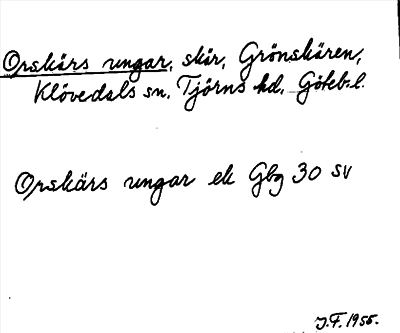 Orskärs ungar, skär, Grönskären,
Klövedals sn. Tjörns hd. Göteb. l.
Orskärs ungar ek Gbg 30 SV
J.F. 1955.